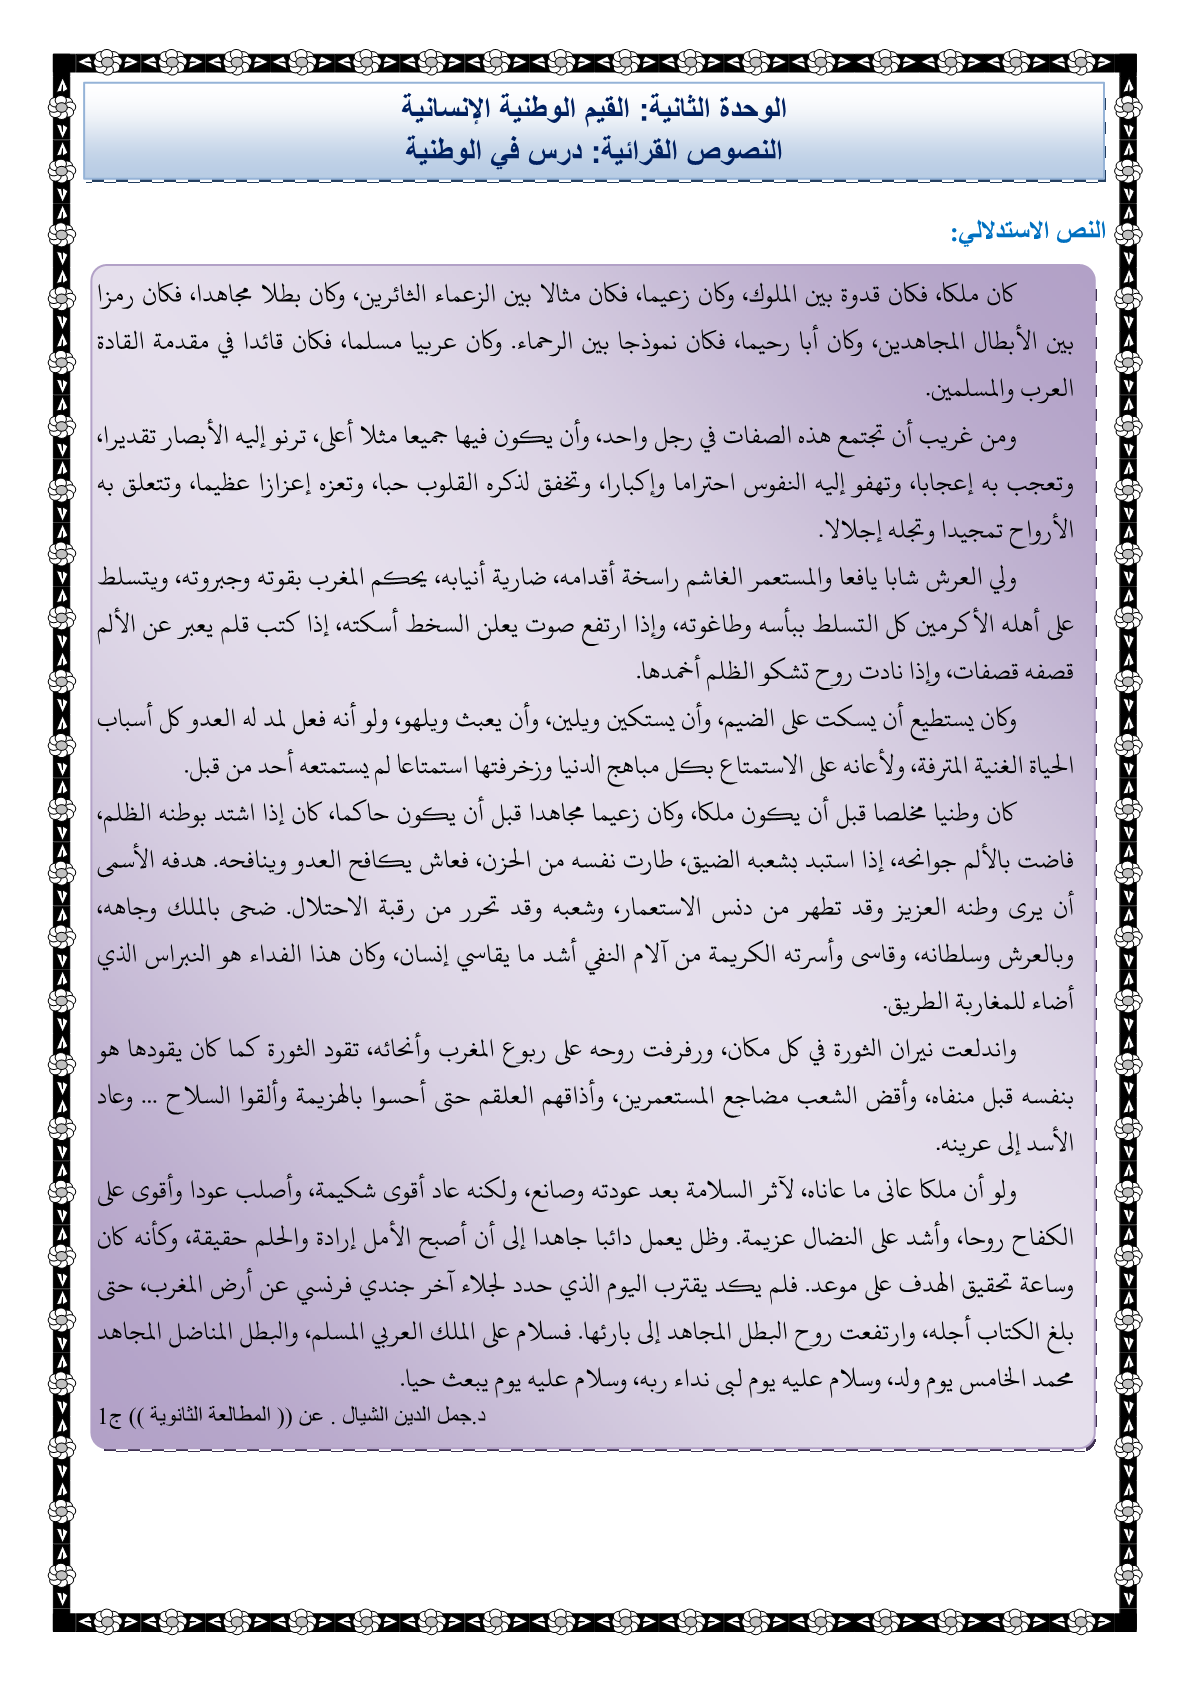 الوحدة الثانية: القيم الوطنية الإنسانية
النصوص القرائية: درس في الوطنية
النص الاستدلالي:
كان ملكا، فكان قدوة بين الملوك، وكان زعيما، فكان مثالا بين الزعماء الثائرين، وكان بطلا مجاهدا، فكان رمزا
بين الأبطال المجاهدين، وكان أبا رحيما، فكان نموذجا بين الرحماء. وكان عربيا مسلما، فكان قائدا في مقدمة القادة
العرب والمسلمين.
ومن غريب أن تجتمع هذه الصفات في رجل واحد، وأن يكون فيها جميعا مثلا أعلى، ترنو إليه الأبصار تقديرا،
وتعجب به إعجابا، وتهفو إليه النفوس احتراما وإكبارا، وتخفق لذكره القلوب حبا، وتعزه إعزازا عظيما، وتتعلق به
الأرواح تمجيدا وتجله إجلالا.
ولي العرش شابا يافعا والمستعمر الغاشم راسخة أقدامه، ضارية أنيابه، يحكم المغرب بقوته وجبروته، ويتسلط
على أهله الأكرمين كل التسلط ببأسه وطاغوته، وإذا ارتفع صوت يعلن السخط أسكته، إذا كتب قلم يعبر عن الألم
قصفه قصفات، وإذا نادت روح تشكو الظلم أخمدها.
وكان يستطيع أن يسكت على الضيم، وأن يستكين ويلين، وأن يعبث ويلهو، ولو أنه فعل لمد له العدو كل أسباب
الحياة الغنية المترفة، ولأعانه على الاستمتاع بكل مباهج الدنيا وزخرفتها استمتاعا لم يستمتعه أحد من قبل.
كان وطنيا مخلصا قبل أن يكون ملكا، وكان زعيما مجاهدا قبل أن يكون حاكما، كان إذا اشتد بوطنه الظلم،
فاضت بالألم جوانحه، إذا استبد بشعبه الضيق، طارت نفسه من الحزن، فعاش يكافح العدو وينافحه. هدفه الأسمى
أن يرى وطنه العزيز وقد تطهر من دنس الاستعمار، وشعبه وقد تحرر من رقبة الاحتلال. ضحى بالملك وجاهه،
وبالعرش وسلطانه، وقاسى وأسرته الكريمة من آلام النفي أشد ما يقاسي إنسان، وكان هذا الفداء هو النبراس الذي
أضاء للمغاربة الطريق.
واندلعت نيران الثورة في كل مكان، ورفرفت روحه على ربوع المغرب وأنحائه، تقود الثورة كما كان يقودها هو
بنفسه قبل منفاه، وأقض الشعب مضاجع المستعمرين، وأذاقهم العلقم حتى أحسوا بالهزيمة وألقوا السلاح ... وعاد
الأسد إلى عرينه.
ولو أن ملكا عانى ما عاناه، لآثر السلامة بعد عودته وصانع، ولكنه عاد أقوى شكيمة، وأصلب عودا وأقوى على
الكفاح روحا، وأشد على النضال عزيمة. وظل يعمل دائبا جاهدا إلى أن أصبح الأمل إرادة والحلم حقيقة، وكأنه كان
وساعة تحقيق الهدف على موعد. فلم يكد يقترب اليوم الذي حدد لجلاء آخر جندي فرنسي عن أرض المغرب، حتى
بلغ الكتاب أجله، وارتفعت روح البطل المجاهد إلى بارئها. فسلام على الملك العربي المسلم، والبطل المناضل المجاهد
محمد الخامس يوم ولد، وسلام عليه يوم لبى نداء ربه، وسلام عليه يوم يبعث حيا.
د.جمل الدين الشيال . عن (( المطالعة الثانوية )) ج1